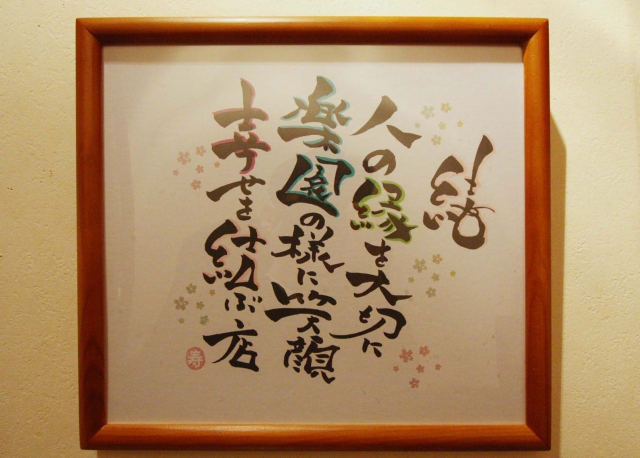 結
人の縁を大切に
楽園の様に笑顔
幸せを結ぶ店
寿